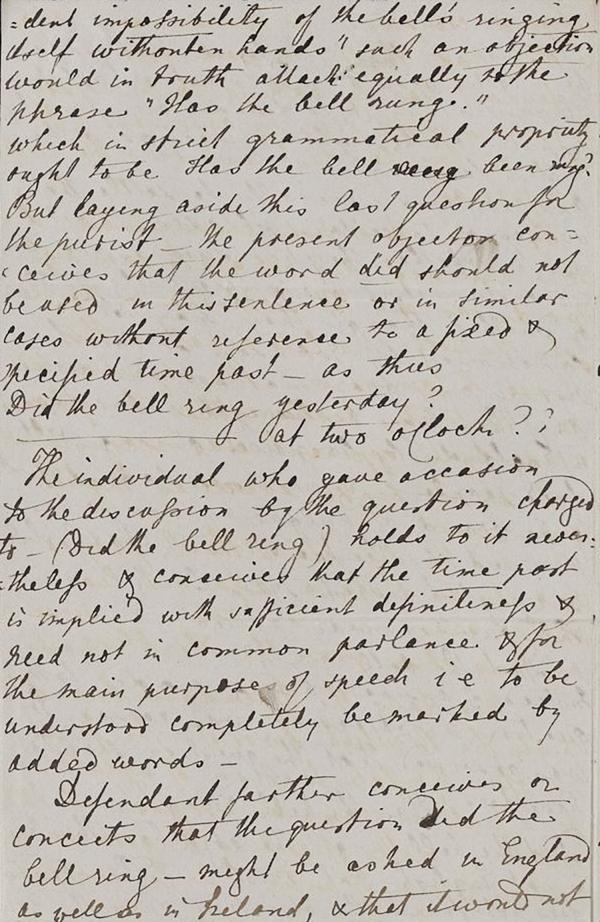 =dent impossibility of the bell's ringing
itself withouten hands" such an objection
would in truth attach equally to the
phrase "Has the bell rung."
which in strict grammatical propriety
ought to be Has the bell been rung?
But laying aside this last question for
the purist – the present objector con=
=ceives that the word did should not
be used in this sentence or in similar
cases without reference to a fixed &
specified time past – as thus
Did the bell ring yesterday?
at two o'Clock??
The individual who gave occasion
to the discussion by the question charged
to – (Did the bell ring) holds to it never=
=theless & conceives that the time past
is implied with sufficient definiteness &
need not in common parlance & for
the main purpose of speech i e to be
understood completely be marked by
added words –
Defendant farther conceives or
conceits that the question Did the
bell ring – might be asked in England
as well as in Ireland, & that it would not